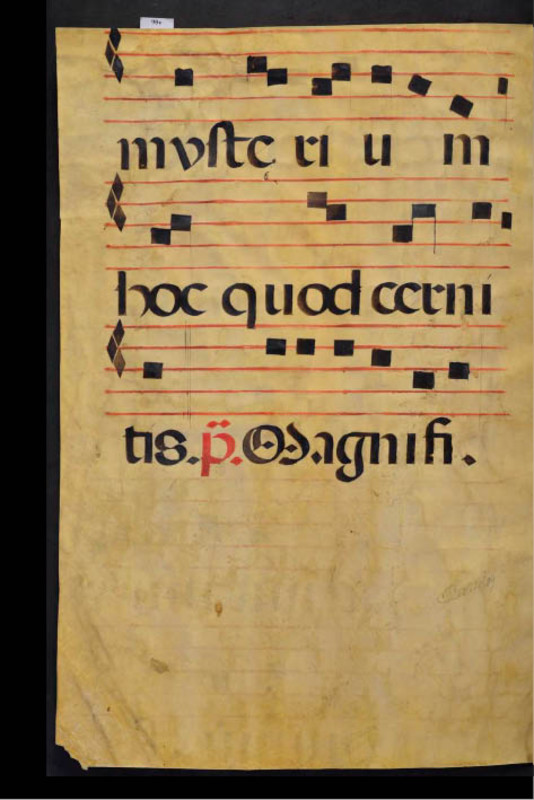 myste ri u m
hoc quod cerni
tis. p̈. Magnifi.